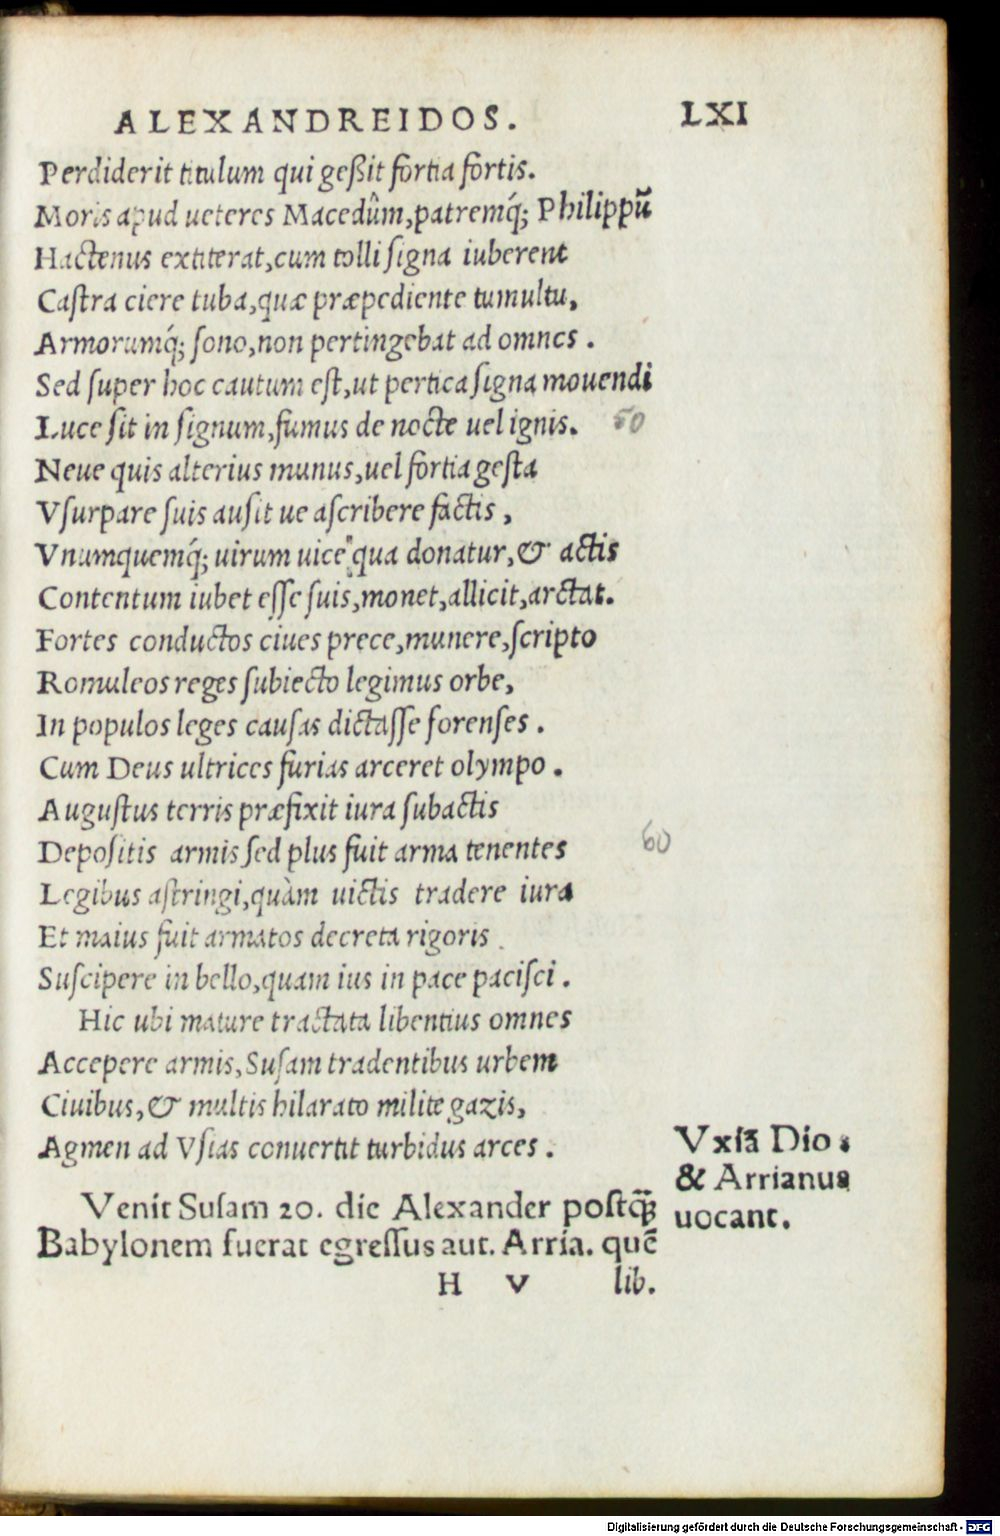 ALEXANDREIDOS. LXI
Perdiderit titulum qui geßit fortia fortis.
Moris apud ueteres Macedûm,patremq́; Philippũ
Hactenus extiterat,cum tolli ſigna iuberent
Caſtra ciere tuba,quæ præpediente tumultu,
Armorumq́; ſono,non pertingebat ad omnes.
Sed ſuper hoc cautum eſt,ut pertica ſigna mouendi
Luce ſit in ſignum,fumus de nocte uel ignis. 50
Neue quis alterius munus,uel fortia geſta
Vſurpare ſuis auſit ue aſcribere factis,
Vnumquemq́; uirum uice qua donatur,& actis
Contentum iubet eſſe ſuis,monet,allicit,arctat.
Fortes conductos ciues prece,munere,ſcripto
Romuleos reges ſubiecto legimus orbe,
In populos leges cauſas dictaſſe forenſes.
Cum Deus ultrices furias arceret olympo.
Auguſtus terris præfixit iura ſubactis
Depoſitis armis ſed plus fuit arma tenentes 60
Legibus aſtringi,quàm uictis tradere iura
Et maius fuit armatos decreta rigoris.
Suſcipere in bello,quam ius in pace paciſci.
Hic ubi mature tractata libentius omnes
Accepere armis,Suſam tradentibus urbem
Ciuibus,& multis hilarato milite gazis,
Agmen ad Vſias conuertit turbidus arces.
Vxiã Dio.
& Arrianus
uocant.
Venit Suſam 20. die Alexander poſtq̃;
Babylonem fuerat egreſſus aut. Arria. quẽ
H v lib.
Digitalisierung gefördert durch die Deutsche Forschungsgemeinschaft - DFG